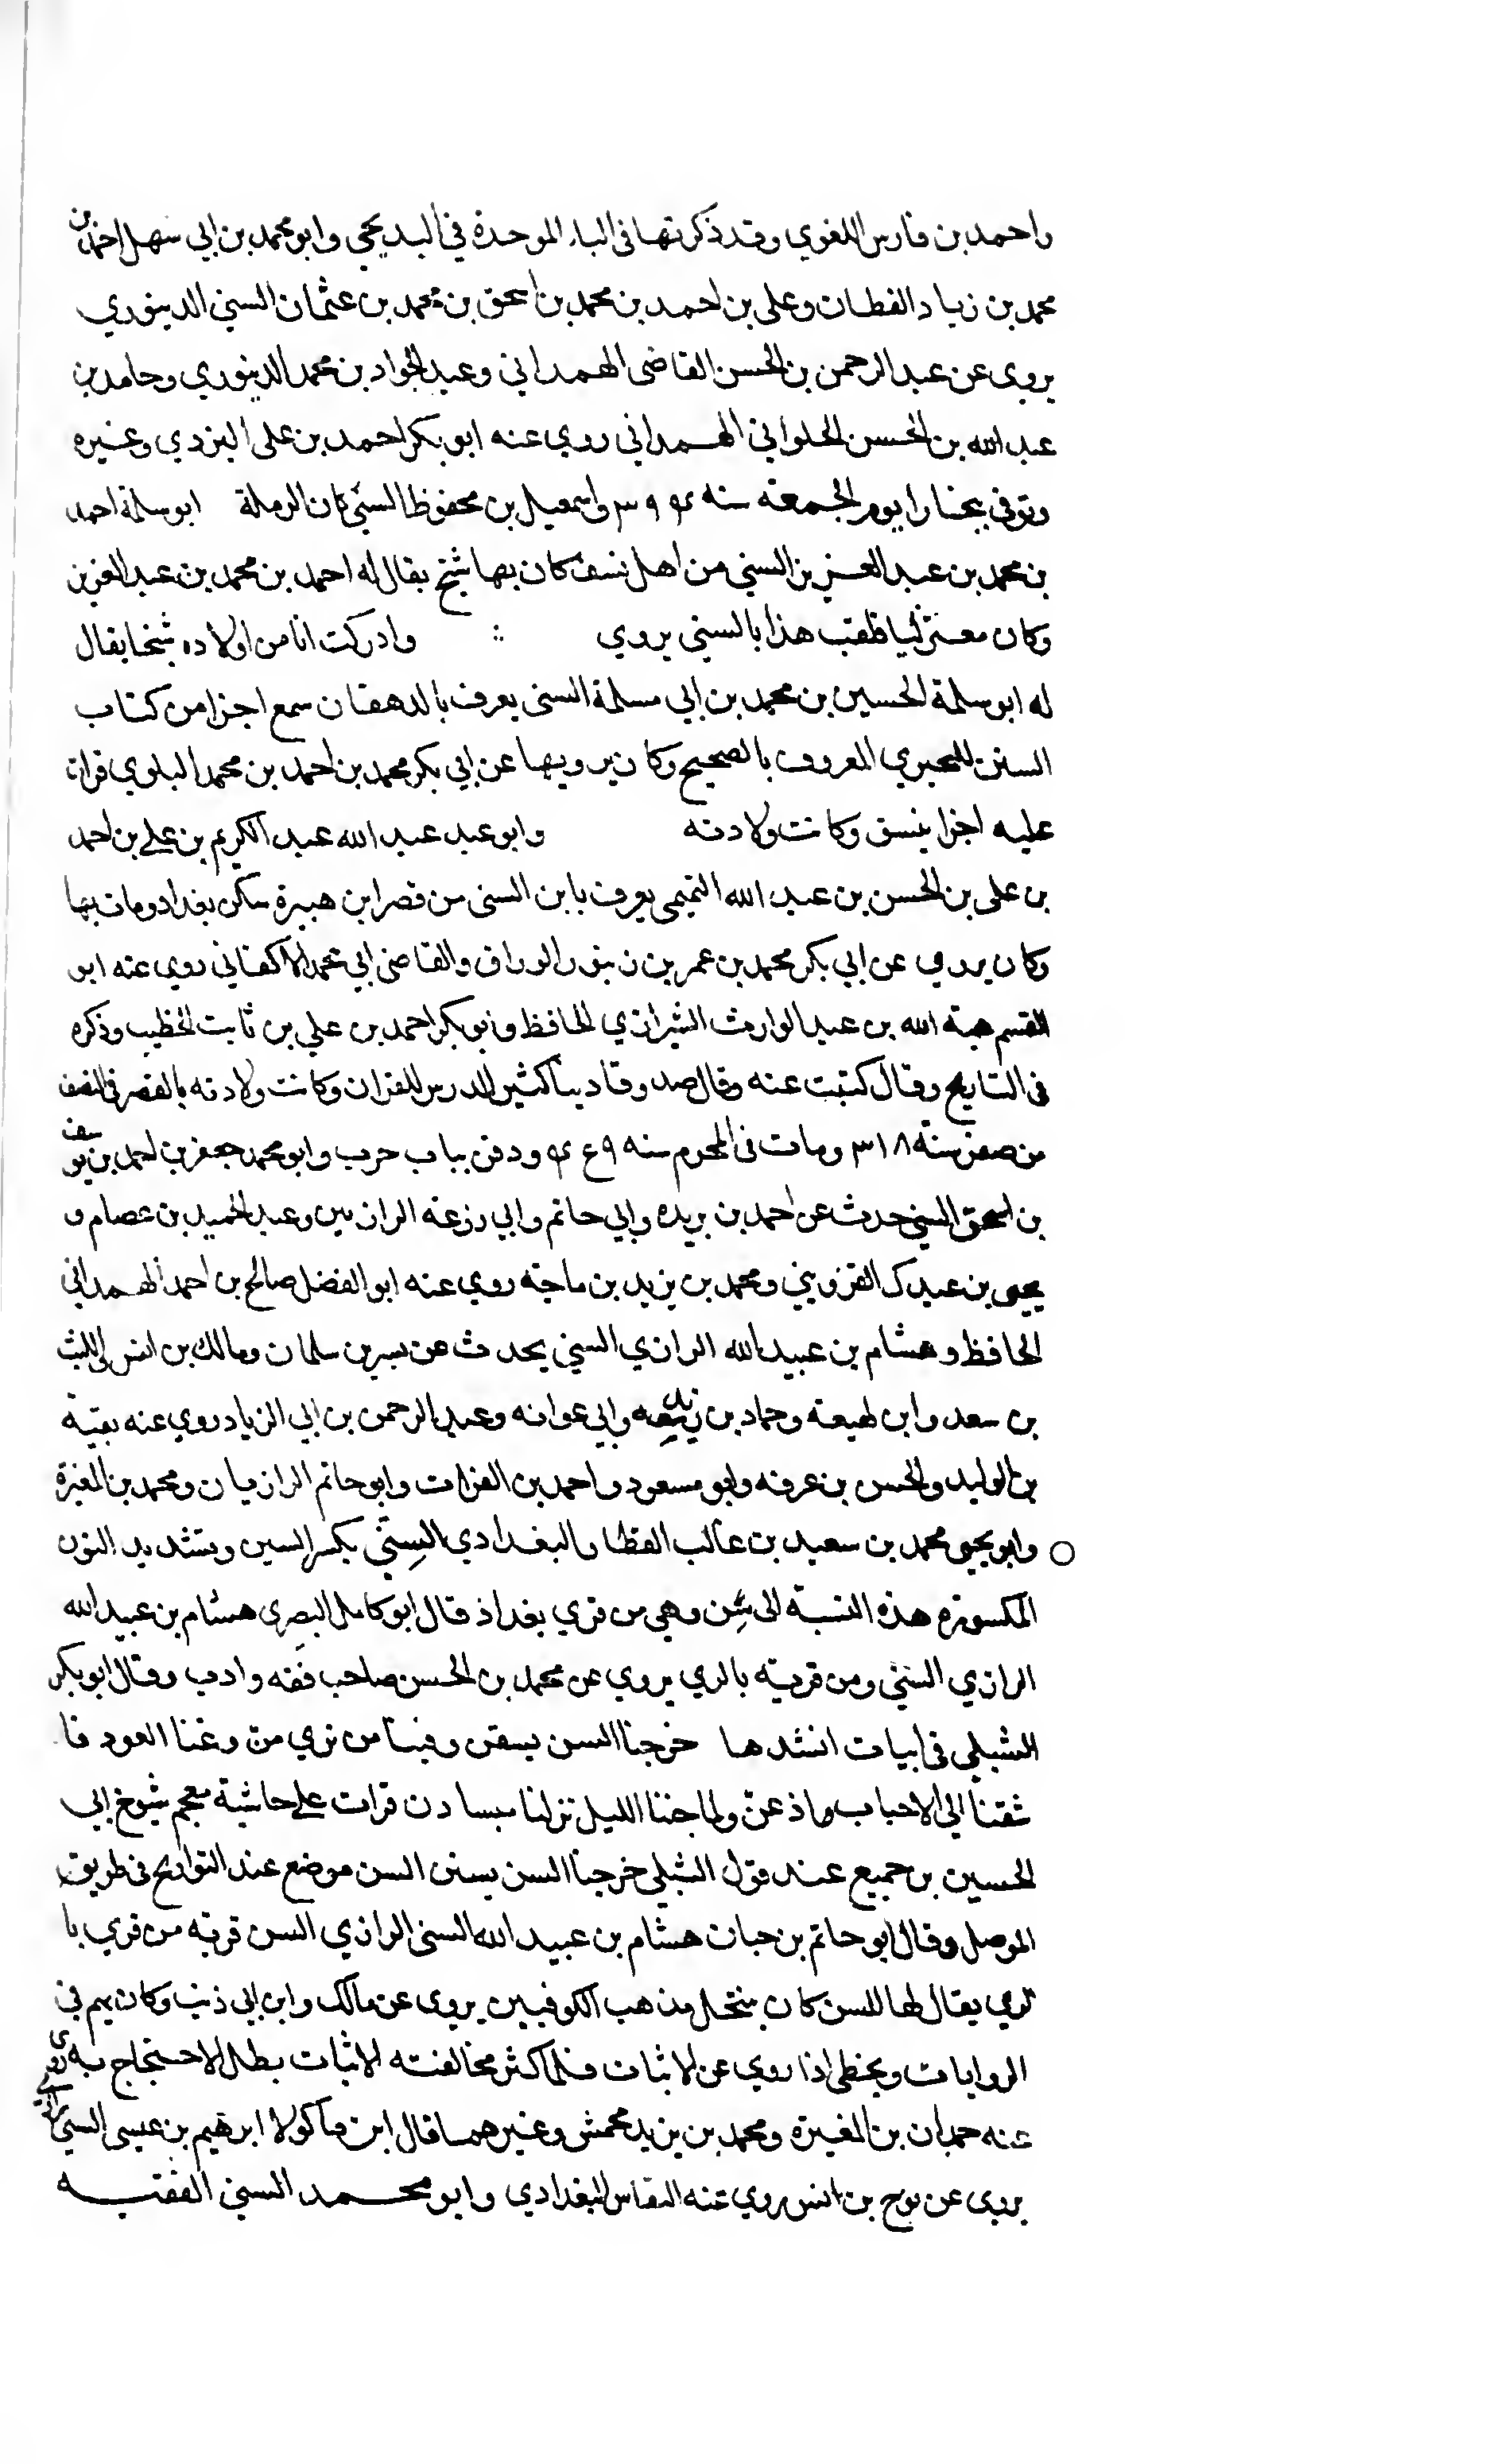 واحمد بن فارس اللغوي وقد ذكرتها في الباء الموحدة في البديحي وابو محمد بن ابي سهل احمد بن
محمد بن زياد القطان وعلى بن احمد بن محمد بن اسحق بن محمد بن عثمان السني الدينوري
يروي عن عبد الرحمن بن الحسن القاضي الهمداني وعبد الجواد بن محمد الدينوري وحامد بن
عبد الله بن الحسن الحلواني الهمداني روي عنه ابو بكر احمد بن على اليزدي وغيره
وتوفي ببخارا يوم الجمعة سنه واسمعيل بن محفوظ السني كان الرملة ابو سلمة احمد
بن محمد بن عبد العزيز السني من اهل نسف كان بها شيخ يقال له احمد بن محمد بن عبد العزيز
وكان معتزليا فلقب هذا بالسني يروي وادركت انا من اولاده شيخا يقال
له ابو سلمة الحسين بن محمد بن ابي مسلمة السنى يعرف بالدهقان سمع اجزا من كتاب
السنن للبجيري المعروف بالصحيح وكان يرويها عن ابي بكر محمد بن احمد بن محمد البلوي قرات
عليه اجزا بنسف وكانت ولادته وابو عبد عبد الله عبد الكريم بن علي بن احمد
بن على بن الحسن بن عبد الله التميمى يعرف بابن السنى من قصر ابن هبيرة سكن بغداد ومات بها
وكان يروي عن ابي بكر محمد بن عمر بن زنبور الوراق والقاضي ابي محمد الاكفاني روي عنه ابو
القسم هبة الله بن عبد الوارث الشيرازي الحافظ وابو بكر احمد بن علي بن ثابت الخطيب وذكره
في التاريخ وقال كتبت عنه وقال صدوقا دينا كثير الدرس للقران وكانت ولادته بالقصر في النصف
من صفر سنة ٣١٨ ومات في المحرم سنه ودفن بباب حرب وابو محمد جعفر بن احمد بن يوسف
بن اسحق السني حدث عن احمد بن بريده وابي حاتم وابي رزعه الرازيين وعبد الحميد بن عصام و
يحيى بن عبدك القزويني ومحمد بن يزيد بن ماجة روي عنه ابو الفضل صالح بن احمد الهمداني
الحافظ وهشام بن عبيد الله الرازي السني يحدث عن بسر بن سلمان ومالك بن انس الليث
بن سعد وابن لهيعة وحماد بن زيد وابي عوانه وعبد الرحمن بن ابي الزياد روي عنه بقية
بن الوليد والحسن بن عرفه وابو مسعود واحمد بن الفرات وابو حاتم الرازيان ومحمد بن المغيرة
وابو يحيى محمد بن سعيد بن غالب القطار البغدادي السِنّي بكسر السين وتشديد النون
المكسوره هذه النسبة الى سِن وهي من قري بغداذ قال ابو كامل البصري هشام بن عبيد الله
الرازي السني ومن قرية بالري يروي عن محمد بن الحسن صاحب فقه وادب وقال ابو بكر
الشبلي في ابيات انشدها خرجنا السن بسقن وفينا من نري من وغنا العود فا
شقنا الى الاحباب ولما جننا الليل نزلنا قرات على حاشية معجم شيوخ ابي
الحسين بن جميع عند قول الشبلي خرجنا السن بسنن السن موضع عند البوازيج في طريق
الموصل وقال ابو حاتم بن حبان هشام بن عبيد الله السنى الرازي السن قرية من قري با
لري يقال لها السن كان ينتحل مذهب الكوفيين يروي عن مالك وابن ابي ذئب وكان يهم في
الروايات ويخطى اذا روي عن الاثبات فلما كثر مخالفته الاثبات بطل الاحتجاج به روي
عنه حمدان بن المغيرة ومحمد بن يزيد محمش وغيرهما قال ابن ماكولا ابرهيم بن عيسى السني الرازي
يروي عن نوح بن انس روي عنه النقاس البغدادي وابو محمد السني الفقيه